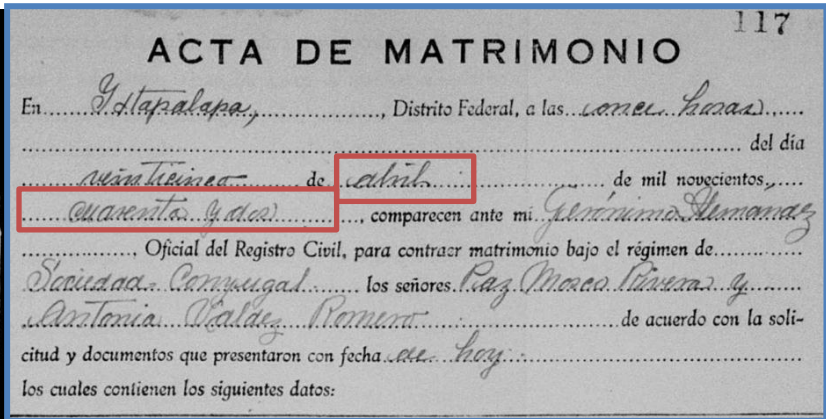 117
ACTA DE MATRIMONIO
En Ixtapalapa, , Distrito Federal, a las once horas
del día
veinticinco de abril de mil novecientos,
cuarenta y dos , comparecen ante mi Gerónimo Hernández
, Oficial del Registro Civil, para contraer matrimonio bajo el régimen de
Sociedad Conyugal los señores Paz Mosco Rivera y
Antonia Valdez Romero de acuerdo con la soli-
citud y documentos que presentaron con fecha de hoy
los cuales contienen los siguientes datos: